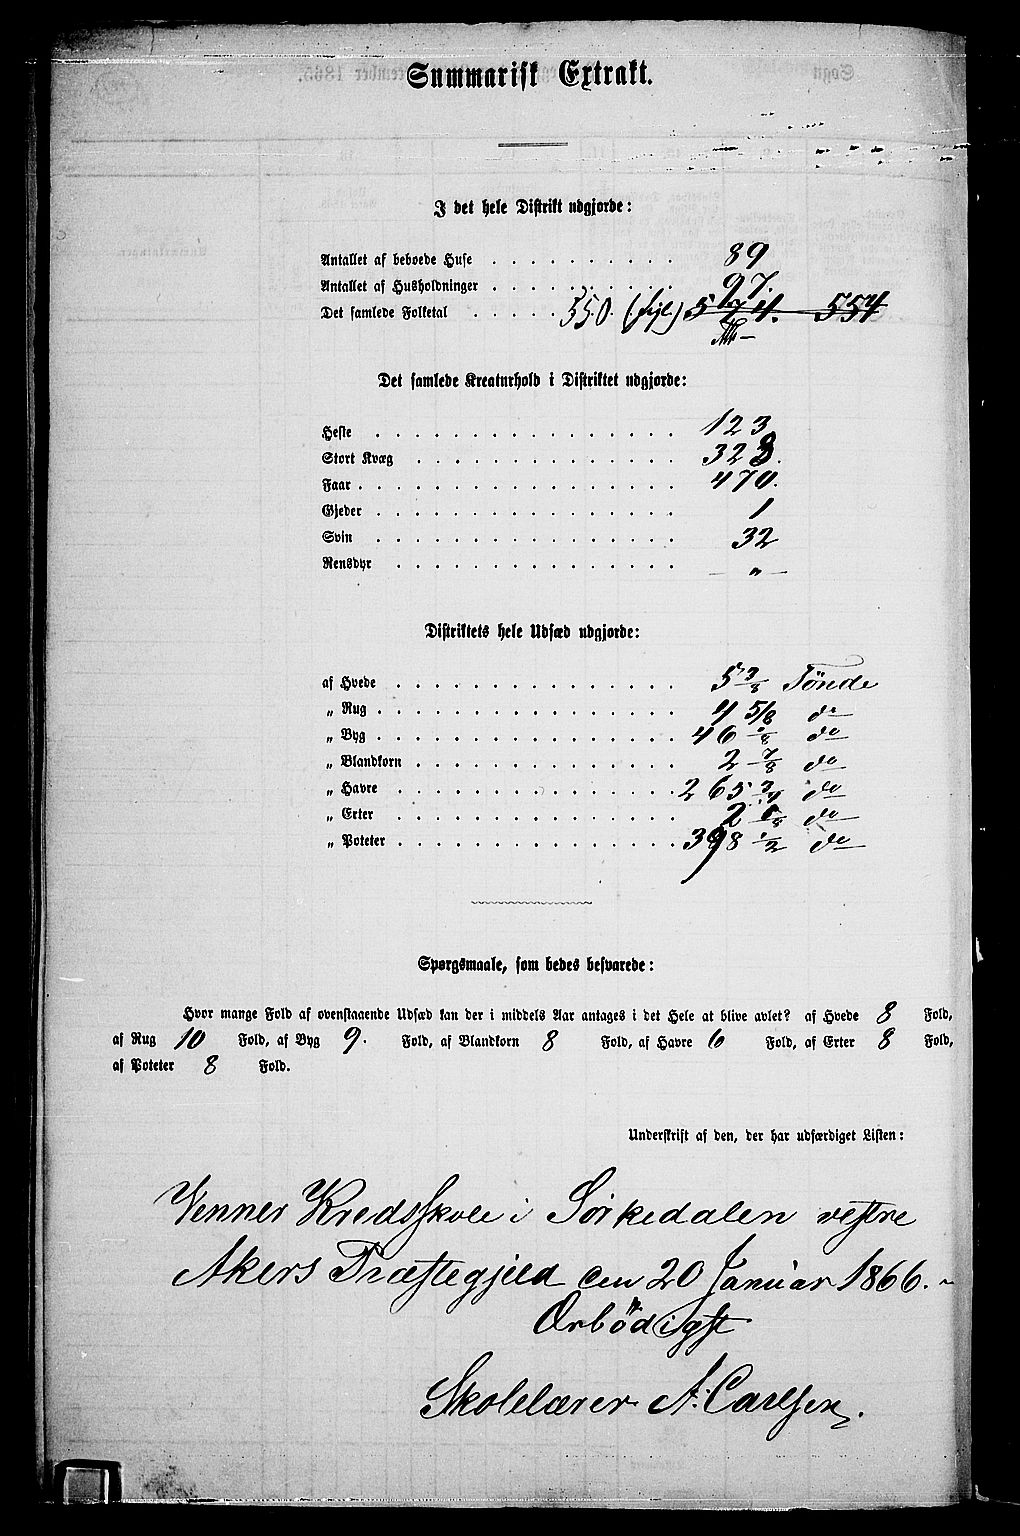 Summarisk Extrakt.
I det hele Distrikt udgjorde:
Antallet af beboede Huse . . . . . . . . . . 89
Antallet af Husholdninger . . . . . . . . . . 97.
Det samlede Folketal . . . . . 550. 574. 554
Det samlede Kreaturhold i Distriktet udgjorde:
Heste . . . . . . . . . . . . . . . . 123
Stort Kvæg . . . . . . . . . . . . . . 323.
Faar . . . . . . . . . . . . . . . . . 470.
Gjeder . . . . . . . . . . . . . . . . 1
Svin . . . . . . . . . . . . . . . . 32
Rensdyr . . . . . . . . . . . . . . . — „ —
Distriktets hele Udsæd udgjorde:
af Hvede . . . . . . . . . . . . . . . 5 3/8 Tönde
„ Rug . . . . . . . . . . . . . . . . 4 5/8 do
„ Byg . . . . . . . . . . . . . . . . 46 do
„ Blandkorn . . . . . . . . . . . . . . 2 7/8 do
„ Havre . . . . . . . . . . . . . . . 265 3/4 do
„ Erter . . . . . . . . . . . . . . . 2 do
„ Poteter . . . . . . . . . . . . . . . 398 1/2 do
Spørgsmaale, som bedes besvarede:
Hvor mange Fold af ovenstaaende Udsæd kan der i middels Aar antages i det Hele at blive avlet? af Hvede 8 Fold,
af Rug 10 Fold, af Byg 9. Fold, af Blandkorn 8 Fold, af Havre 6 Fold, af Erter 8 Fold,
af Poteter 8 Fold.
Underskrift af den, der har udfærdiget Listen:
Venner Kredsskole i Sörkedalen vestre
Akers Præstegjeld den 20 Januar 1866.
Ærbödigst
Skolelærer A. Carlsen.